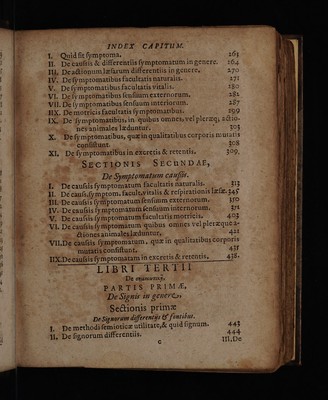 INDEX CAPITUM.
I. Quid sit symptoma. 263
II. De caussis & differentiis symptomatum in genere. 264
III. De actionum læsarum differentiis in genere. 270
IV. De symptomatibus facultatis naturalis. 271
V. De symptomatibus facultatis vitalis. 280
VI. De symptomatibus sensuum exteriorum. 282
VII. De symptomatibus sensuum interiorum. 287
IIX. De motricis facultatis symptomatibus. 299
IX. De symptomatibus, in quibus omnes, vel pleræq; actio-
nes animales læduntur. 303
X. De symptomatibus, quæ in qualitatibus corporis mutatis
consistunt. 308
XI. De symptomatibus in excretis & retentis. 309.
SECTIONIS SECUNDAE,
De Symptomatum caussis.
I. De caussis symptomatum facultatis naturalis. 313
II. De caussis symptom. facult. vitalis & respirationis læsæ. 345
III. De caussis symptomatum sensuum externorum. 350
IV. De caussis symptomatum sensuum internorum.
V. De caussis symptomatum facultatis motricis. 403
VI. De caussis symptomatum quibus omnes vel pleræque a-
ctiones animales læduntur. 421
VII. De caussis symptomatum, quæ in qualitatibus corporis
mutatis consistunt. 431
IIX. De caussis symptomatum in excretis & retentis. 438.
LIBRI TERTII
De
PARTIS PRIMÆ,
De Signis in genere,
Sectionis primæ
De Signorum differentijs & fontibus.
I. De methodi semioticæ utilitate, & quid signum. 443
II. De signorum differentiis. 444
c III. De